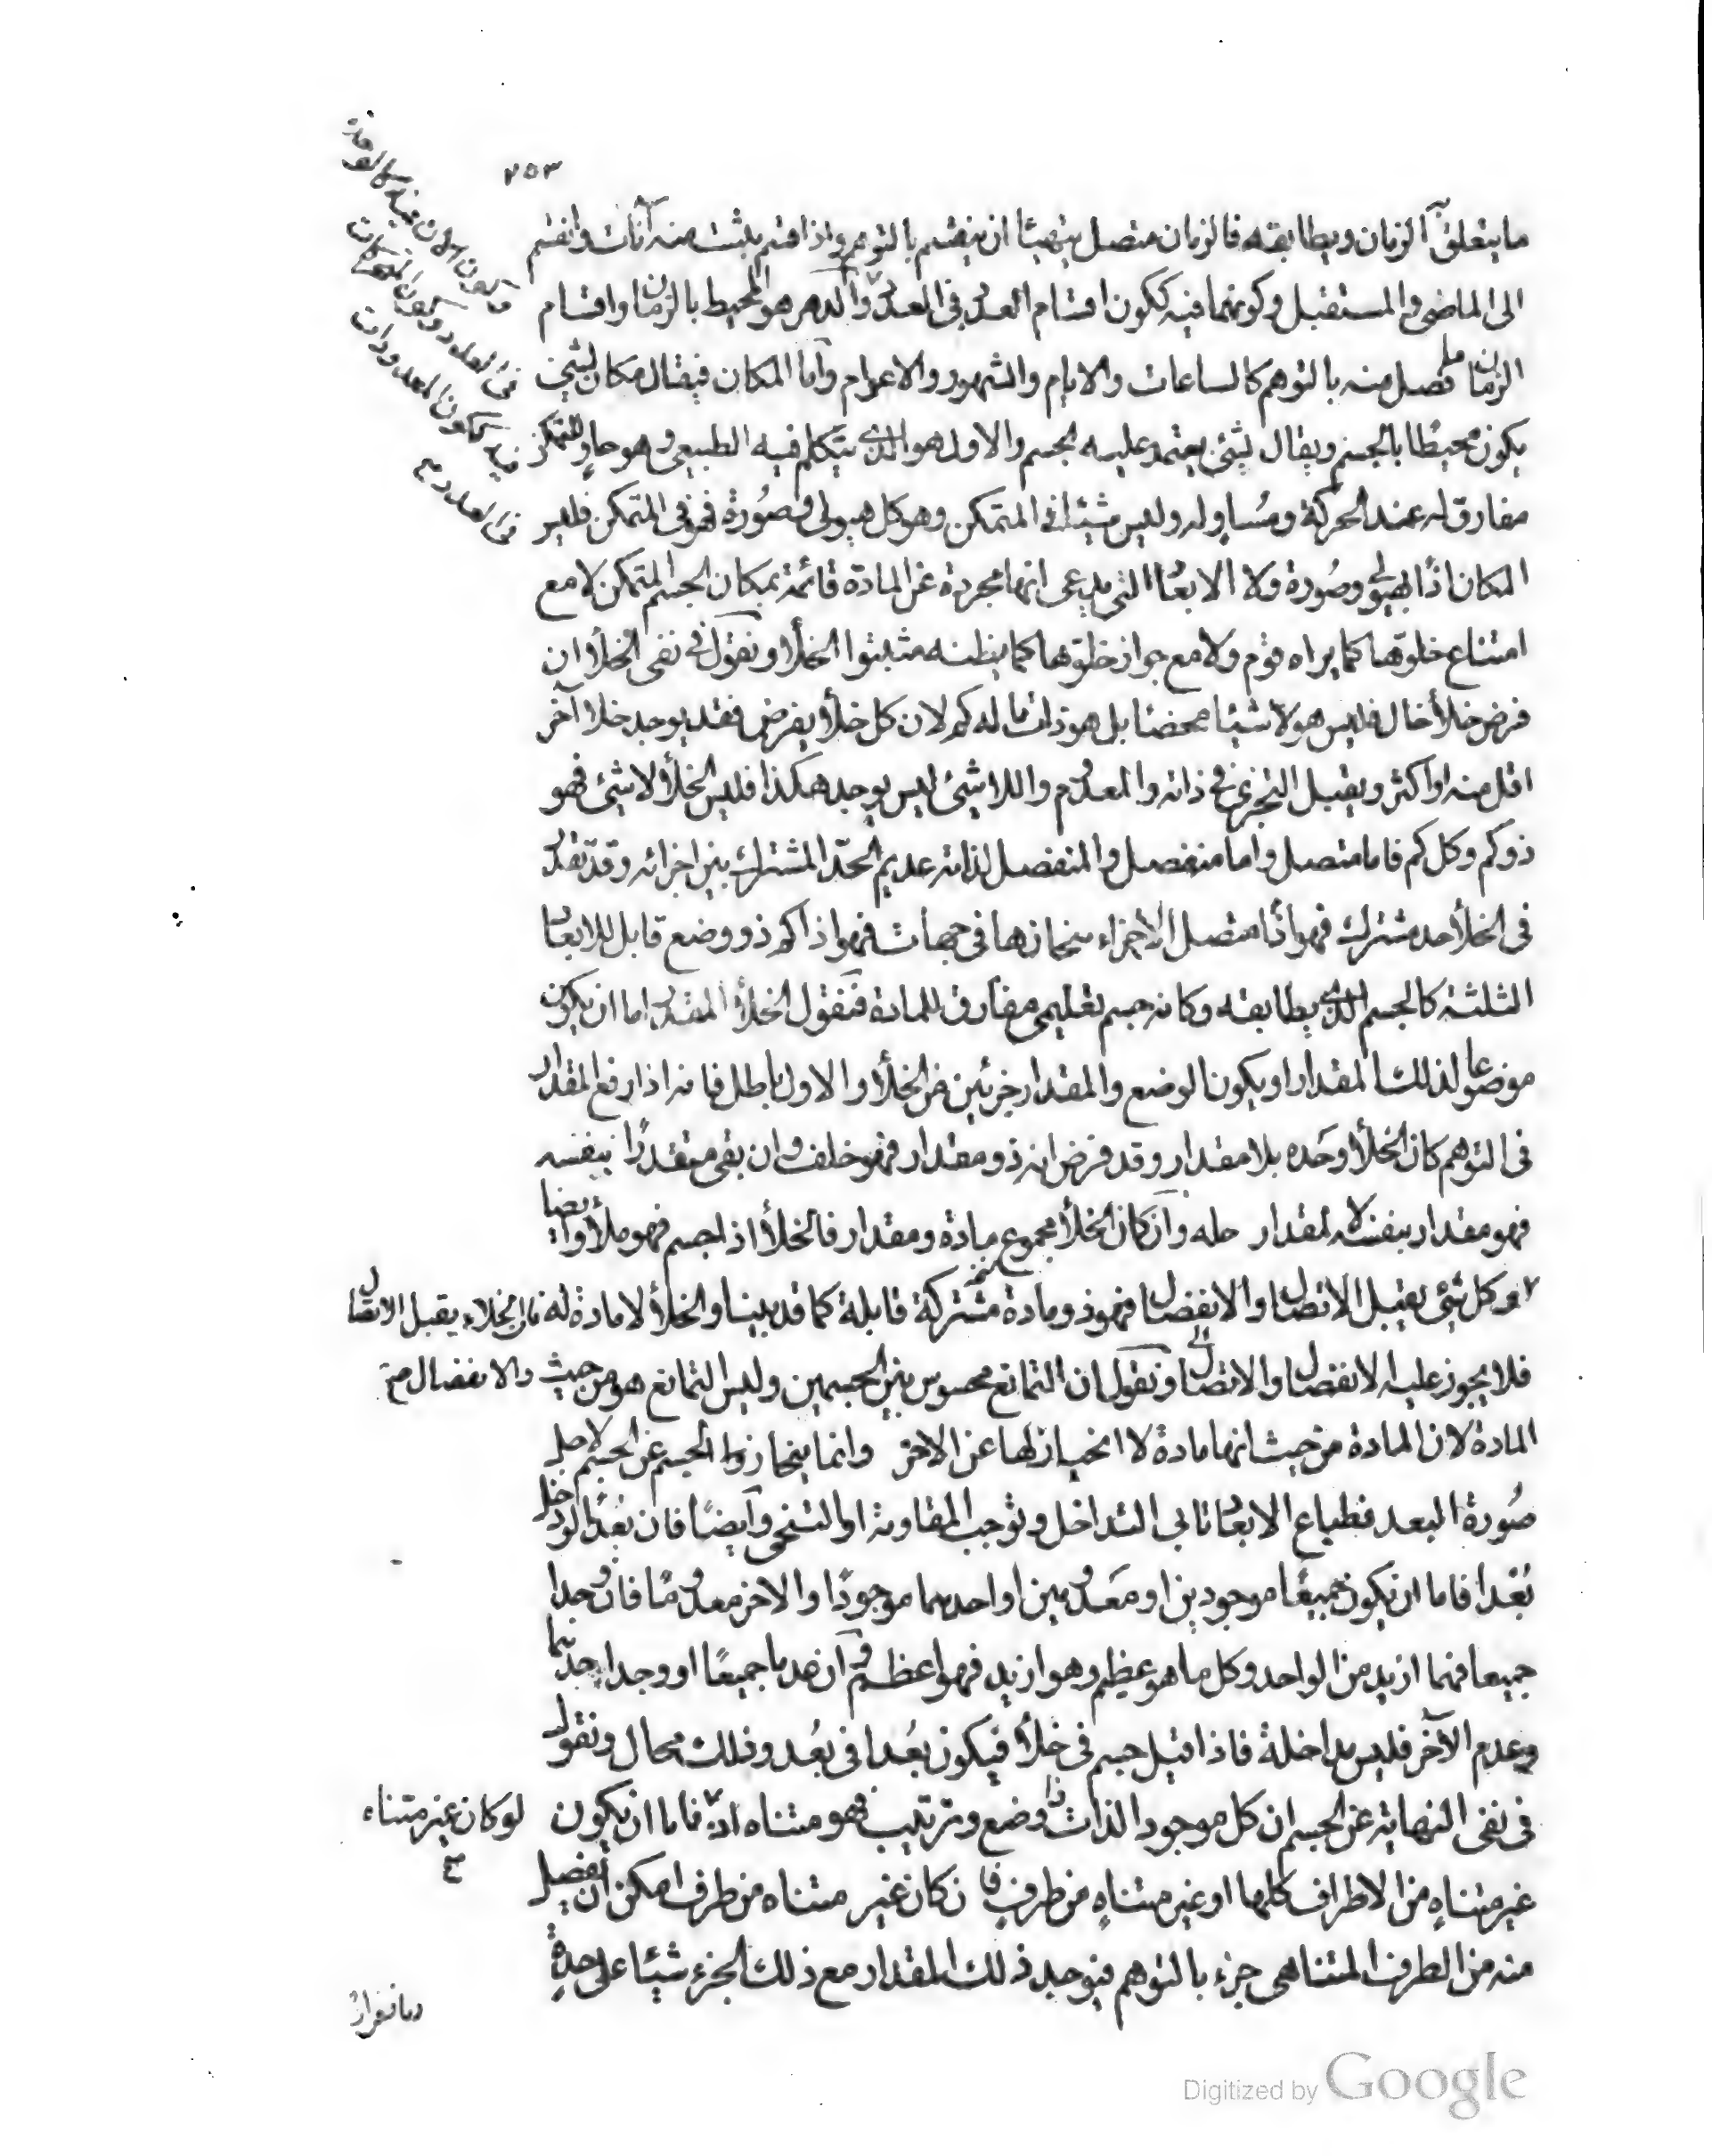 ٢٥٣
ما يتعلق الزمان ويطابقه فالزمان متصل يتهيئا ان ينقسم بالتوهم واذا قسم يثبت منه آنات وانقسم
الى الماضى والمستقبل وكونهما فيه ككون اقسام العدد فى العدد والدهر هو المحيط بالزمان واقسام
الزمان ما فصل منه بالتوهم كالساعات والايام والشهور والاعوام واما المكان فيقال مكان لشئ
يكون محيطا بالجسم ويقال لشئ يعتمد عليه الجسم والاول هو الذى يتكلم فيه الطبيعى وهو حاو للمتمكن
مفارق له عند الحركة ومساو له وليس شيئا فى المتمكن وهو كل هيولى وصورة فهو فى المتمكن فليس
المكان اذا بهيولى وصورة ولا الابعاد التى يدعى انها مجردة عن المادة قائمة بمكان الجسم المتمكن لا مع
امتناع خلوها كما يراه قوم ولا مع جواز خلوها كما يظنه مثبتوا الخلأ ونقول فى نفى الخلأ ان
فرض خلأ خال فليس هو لا شيئا محضا بل هو ذات ما له كم لان كل خلأ يفرض فقد يوجد خلأ آخر
اقل منه او اكثر ويقبل التجزى فى ذاته والمعدوم واللاشئ ليس يوجد هكذا فليس الخلأ لا شئ فهو
ذو كم وكل كم فاما متصل واما منفصل والمنفصل لذاته عديم الحد المشترك بين اجزائه وقد تقدر
فى الخلأ حد مشترك فهو اذا متصل الاجزاء منحازها فى جهات فهو اذا كم ذو وضع قابل للابعاد
الثلثة كالجسم الذى يطابقه وكانه جسم تعليمى مفارق للمادة فنقول الخلأ المقدر اما ان يكون
موضوعا لذلك المقدار او يكون الوضع والمقدار جزئين من الخلأ والاول باطل فانه اذا رفع المقدار
فى التوهم كان الخلأ وحده بلا مقدار وقد فرض انه ذو مقدار فهو خلف وان بقى متقدرا بنفسه
فهو مقدار بنفسه لا لمقدار حله وان كان الخلأ مجموع مادة ومقدار فالخلأ اذا جسم فهو ملأ وايضا
وكل شئ يقبل الاتصال والانفصال فهو ذو مادة مشتركة قابلة كما قد بينا والخلأ لا مادة له فان الخلاء يقبل الاتصال
فلا يجوز عليه الانفصال والاتصال ونقول ان التمانع محسوس بين الجسمين وليس التمانع هو من حيث والانفصال صح
المادة لان المادة من حيث انها مادة لا انحياز لها عن الآخر وانما ينحاز الجسم عن الجسم لاجل
صورة البعد فطباع الابعاد تأبى التداخل وتوجب المقاومة او التنحى وايضا فان بعدا لو دخل
بعدا فاما ان يكون جميعا موجودين او معدومين او احدهما موجودا والاخر معدوما فان وجدا
جميعا فهما ازيد من الواحد وكل ما هو عظيم وهو ازيد فهو اعظم وان عدما جميعا او وجد احدهما
وعدم الآخر فليس مداخلة فاذا قيل جسم فى خلأ فيكون بعدا فى بعد وذلك محال ونقول
فى نفى النهاية عن الجسم ان كل موجود الذات ذا وضع وترتيب فهو متناه اذ فاما ان يكون لو كان غير متناه
غير متناه من الاطراف كلها او غير متناه من طرف فان كان غير متناه من طرف امكن ان يفصل صح
منه من الطرف المتناهى جزء بالتوهم فيوجد ذلك المقدار مع ذلك الجزء شيئا على حدة
ويكون الآن فيه كالوحدة
فى العدد وكون المتحركات
فيه ككون المعدودات
فى العدد صح
وبانفراده
Digitized by Google